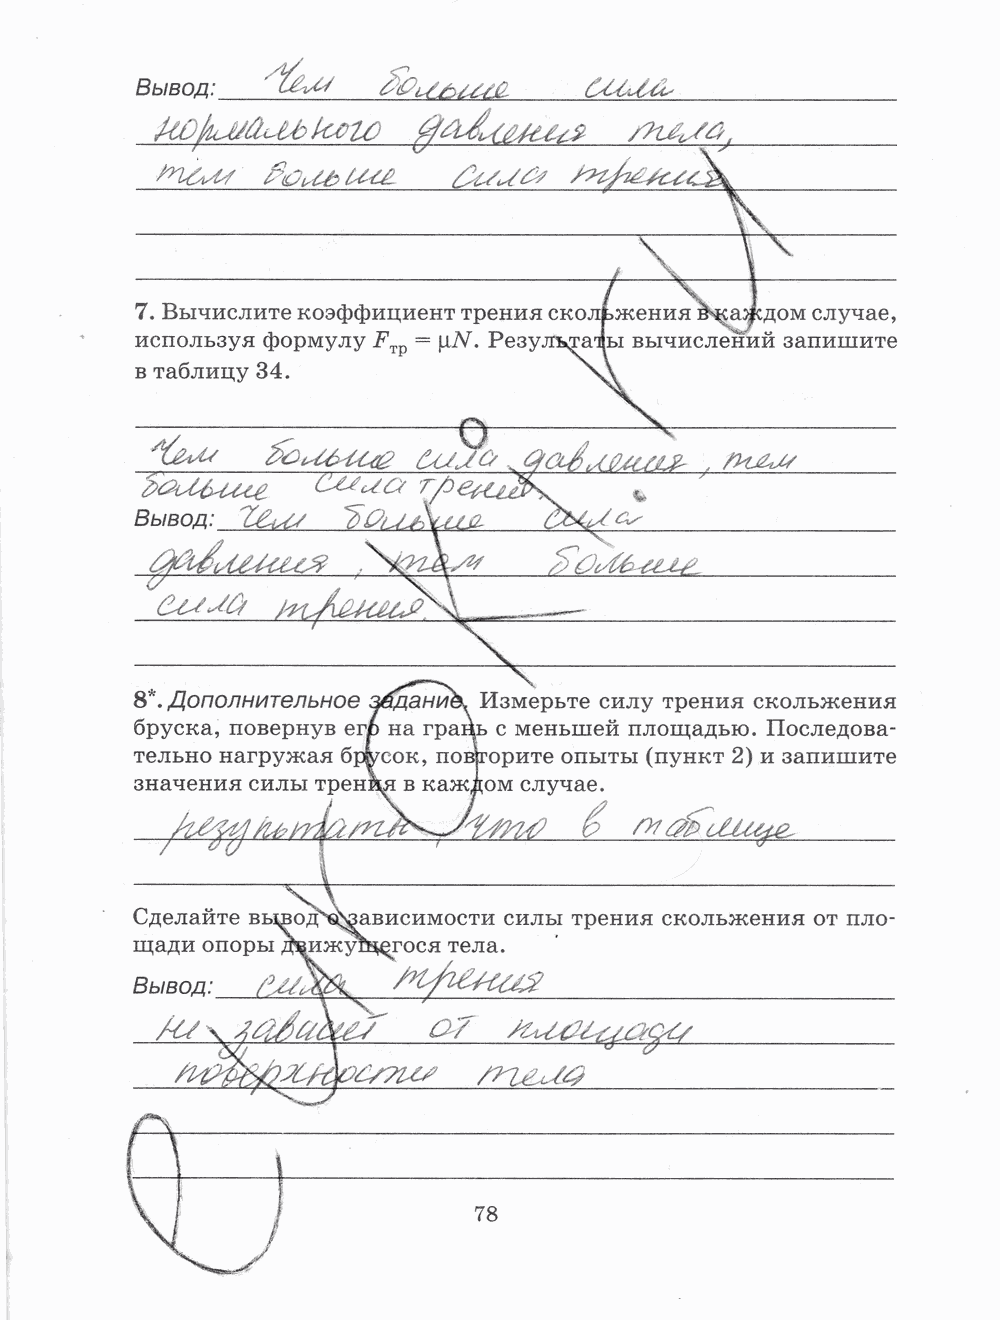 Вывод: Чем больше сила
нормального давления тела,
тем больше сила трения
7. Вычислите коэффициент трения скольжения в каждом случае,
используя формулу Fтр = μN. Результаты вычислений запишите
в таблицу 34.
Чем больше сила давления, тем
больше сила трения.
Вывод: Чем больше сила
давления, тем больше
сила трения.
8*. Дополнительное задание. Измерьте силу трения скольжения
бруска, повернув его на грань с меньшей площадью. Последова-
тельно нагружая брусок, повторите опыты (пункт 2) и запишите
значения силы трения в каждом случае.
результаты, что в таблице
Сделайте вывод о зависимости силы трения скольжения от пло-
щади опоры движущегося тела.
Вывод: сила трения
не зависит от площади
поверхности тела
78